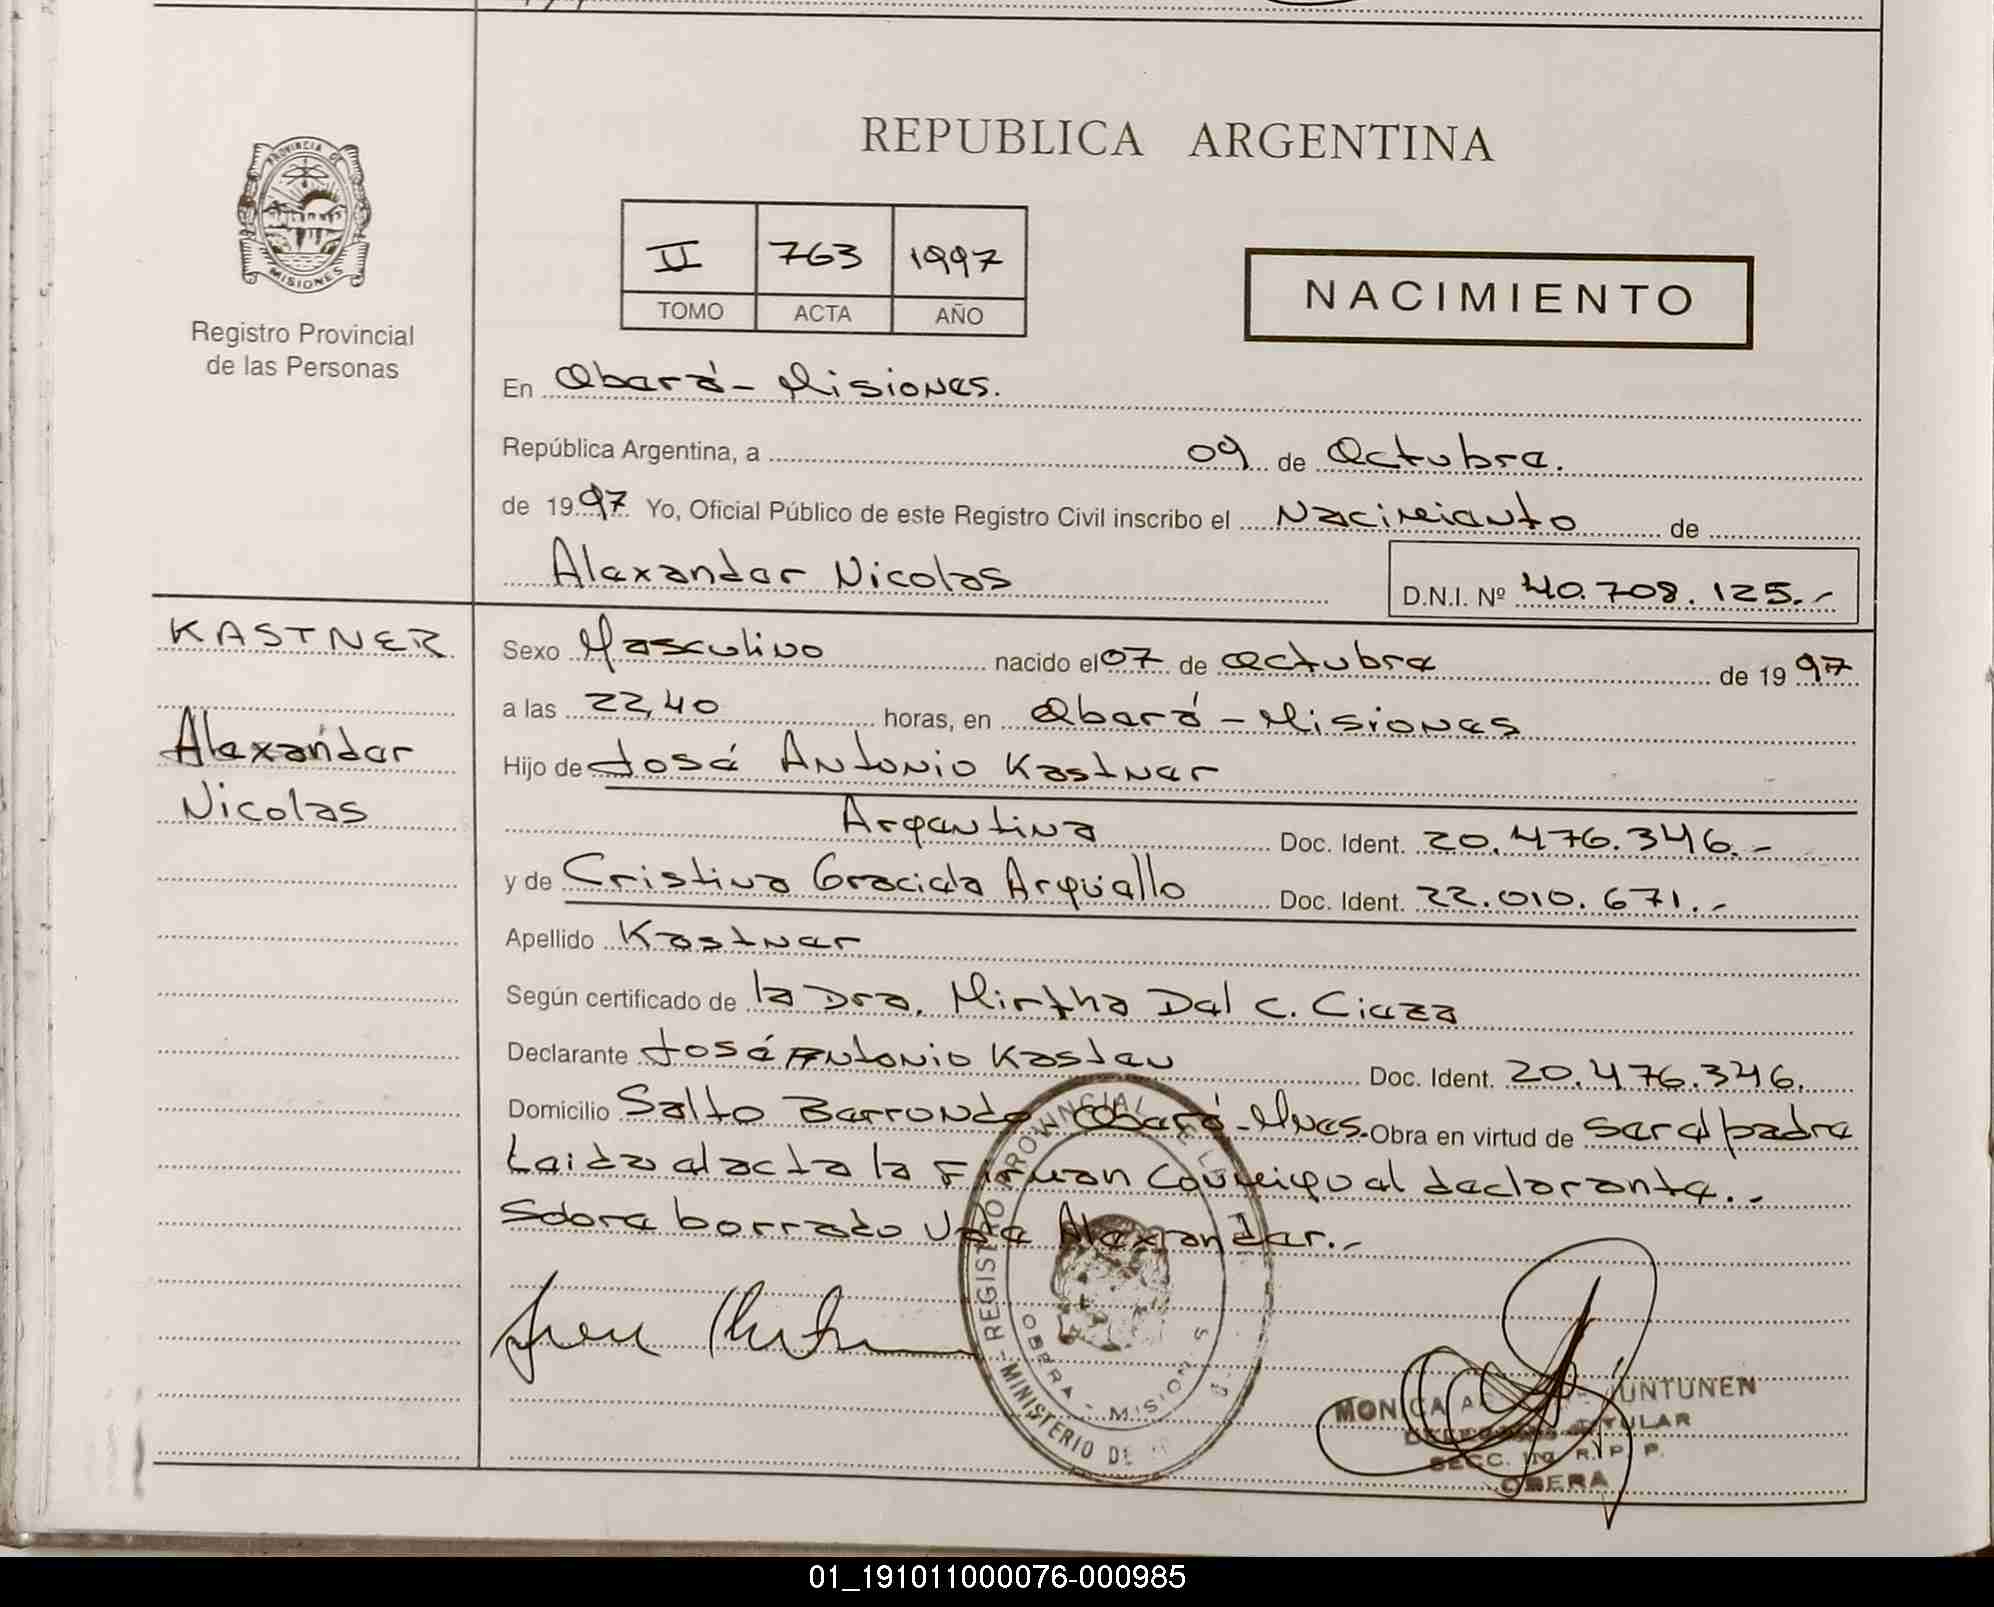 REPUBLICA ARGENTINA
PROVINCIA DE
MISIONES
Registro Provincial
de las Personas
II 763 1997
TOMO ACTA AÑO
NACIMIENTO
En Oberá - Misiones.
República Argentina, a 09 de Octubre.
de 1997 Yo, Oficial Público de este Registro Civil inscribo el Nacimiento de
Alexander Nicolas
D.N.I. Nº 40.708.125.-
KASTNER
Alexander
Nicolas
Sexo Masculino nacido el 07 de Octubre de 1997
a las 22,40 horas, en Oberá - Misiones
Hijo de José Antonio Kastner
Argentina Doc. Ident. 20.476.346.-
y de Cristina Graciela Arguello Doc. Ident. 22.010.671.-
Apellido Kastner
Según certificado de la Dra. Mirtha Del C. Cieza
Declarante José Antonio Kasten Doc. Ident. 20.476.346.
Domicilio Salto Berrondo Oberá - Mnes. Obra en virtud de ser el padre
Leida el acta la Firman Conmigo el declarante.-
Sobre borrado Vale Alexander.-
REGISTRO PROVINCIAL DE LA
OBERA - MISIONES
MINISTERIO DE
MONICA A UNTUNEN
TITULAR
SECC. 1ra. R. P. P.
OBERA
01_191011000076-000985